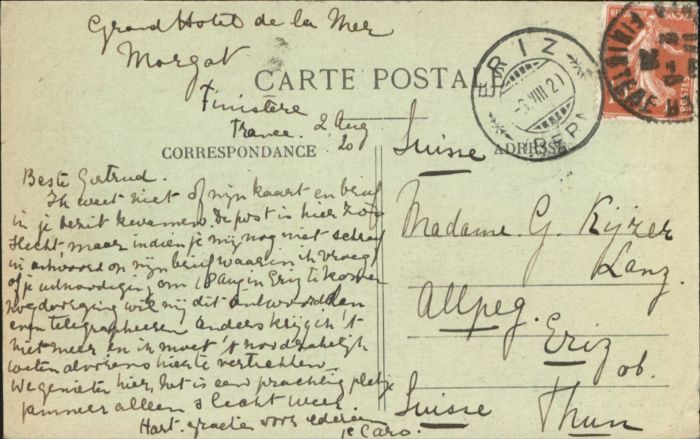 Grand Hotel de la Mer
Morgat
CARTE POSTALE
Finistere
France. 2 Aug
20
CORRESPONDANCE
ADRESSE
ERIZ
BERN
FINISTERE
POSTES
Beste Gertrud.
Ik weet niet of mijn kaart en brief
in je bezit kwamen. De post is hier zoo
slecht, maar indien je mij nog niet schreef
in antwoord op mijn brief waarin ik vroeg
of je uitnoodiging om 18 Aug in Eriz te komen
nog doorging wil mij dit antwoord dan
even telegrapheeren anders krijg ik 't
niet meer en ik moet 't noodzakelijk
weten alvorens hier te vertrekken.
We genieten hier, het is een prachtig plekje
jammer alleen slecht weer.
Hart. groeten voor iedereen
Caro.
Suisse
Madame G Kijzer
Lanz.
Allpeg.
Eriz
ob.
Suisse Thun